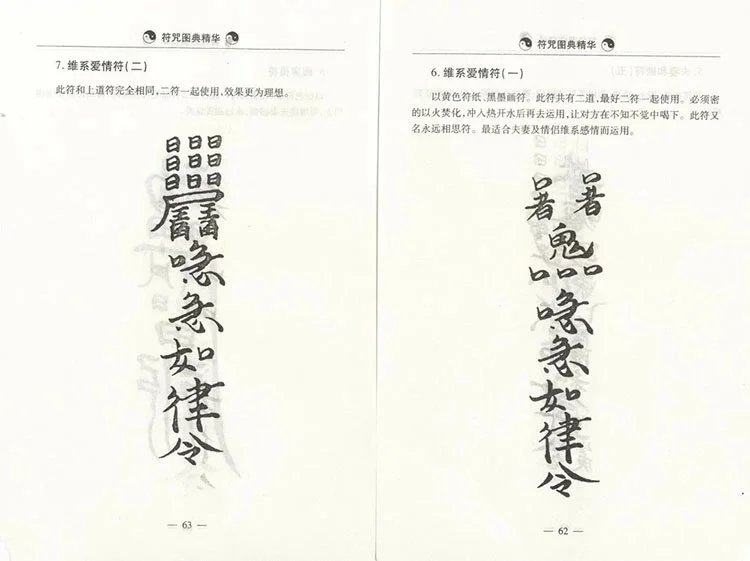 符咒图典精华
7. 维系爱情符(二)
此符和上道符完全相同,二符一起使用,效果更为理想。
日日日
日日日
日日日
喼
急
如
律
令
— 63 —
符咒图典精华
6. 维系爱情符(一)
以黄色符纸、黑墨画符。此符共有二道,最好二符一起使用。必须密
的以火焚化,冲人热开水后再去运用,让对方在不知不觉中喝下。此符又
名永远相思符。最适合夫妻及情侣维系感情而运用。
鬼
口口口
喼
急
如
律
令
— 62 —